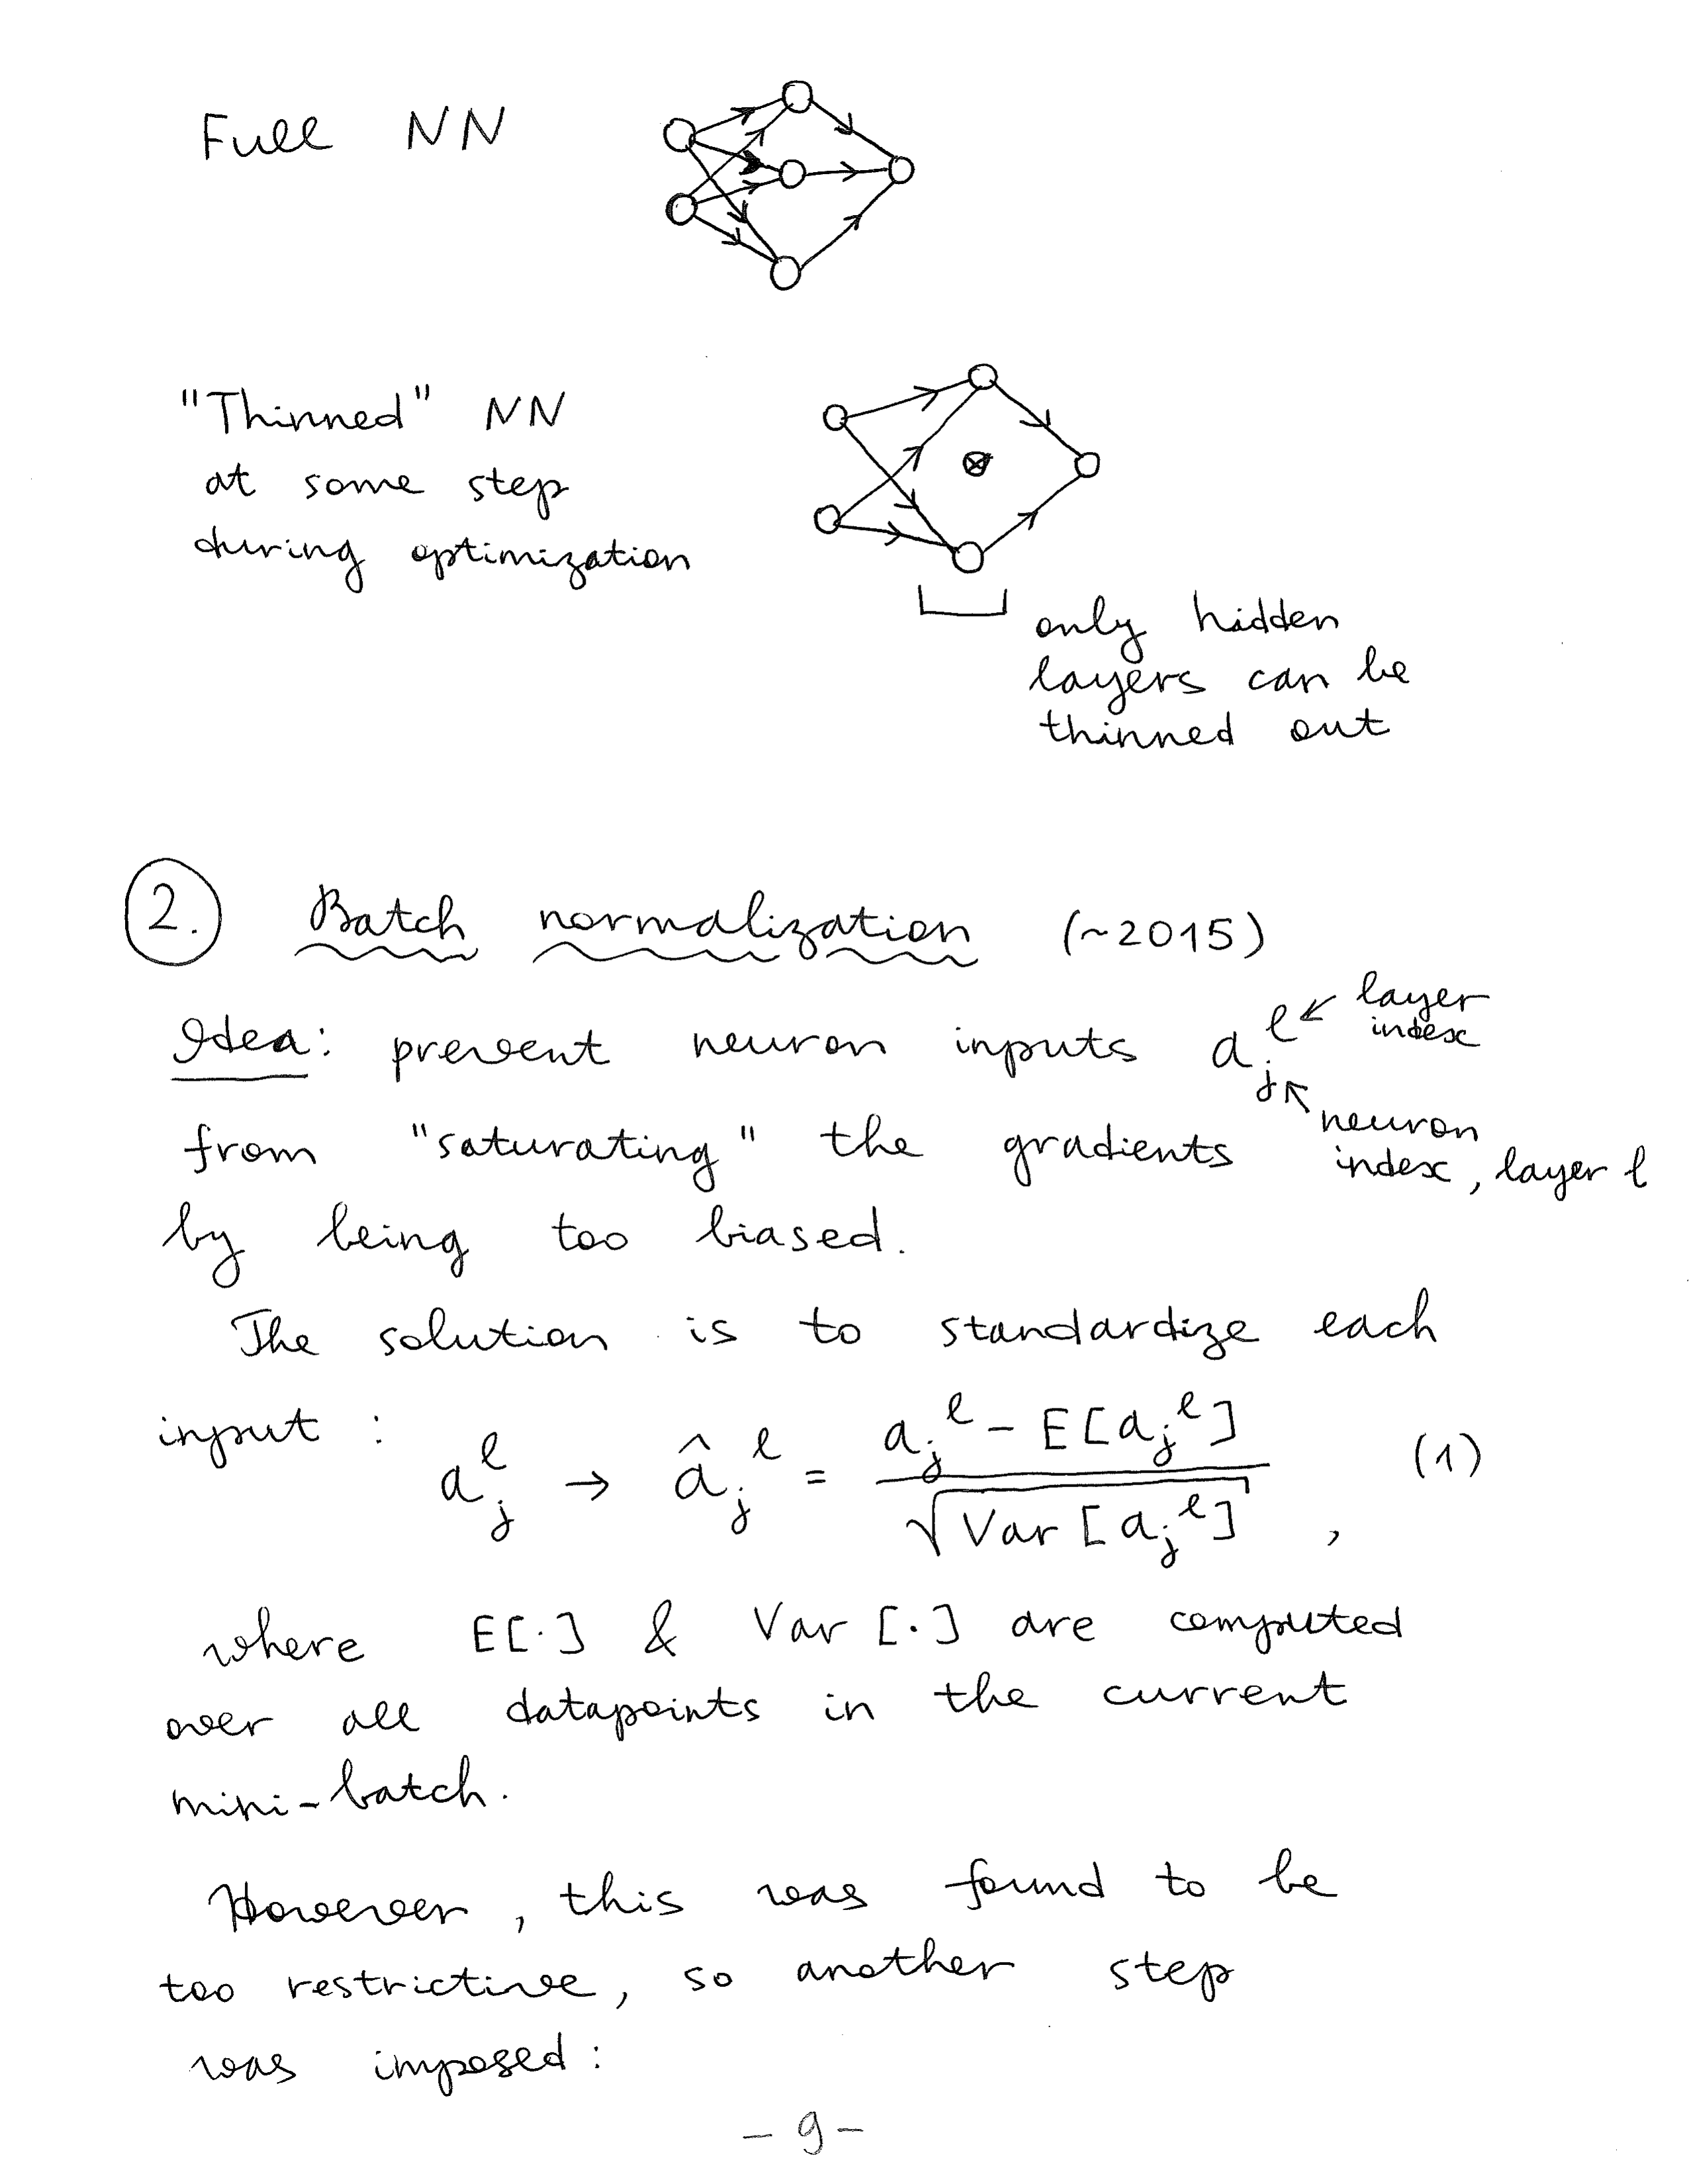 Full NN
"Thinned" NN
at some step
during optimization
only hidden
layers can be
thinned out
2. Batch normalization (~2015)
Idea: prevent neuron inputs a_j^ℓ ← layer
index
↖ neuron
index, layer ℓ
from "saturating" the gradients
by being too biased.
The solution is to standardize each
input : a_j^ℓ → â_j^ℓ = (a_j^ℓ - E[a_j^ℓ]) / √Var[a_j^ℓ] , (1)
where E[·] & Var[·] are computed
over all datapoints in the current
mini-batch.
However, this was found to be
too restrictive, so another step
was imposed:
- 9 -